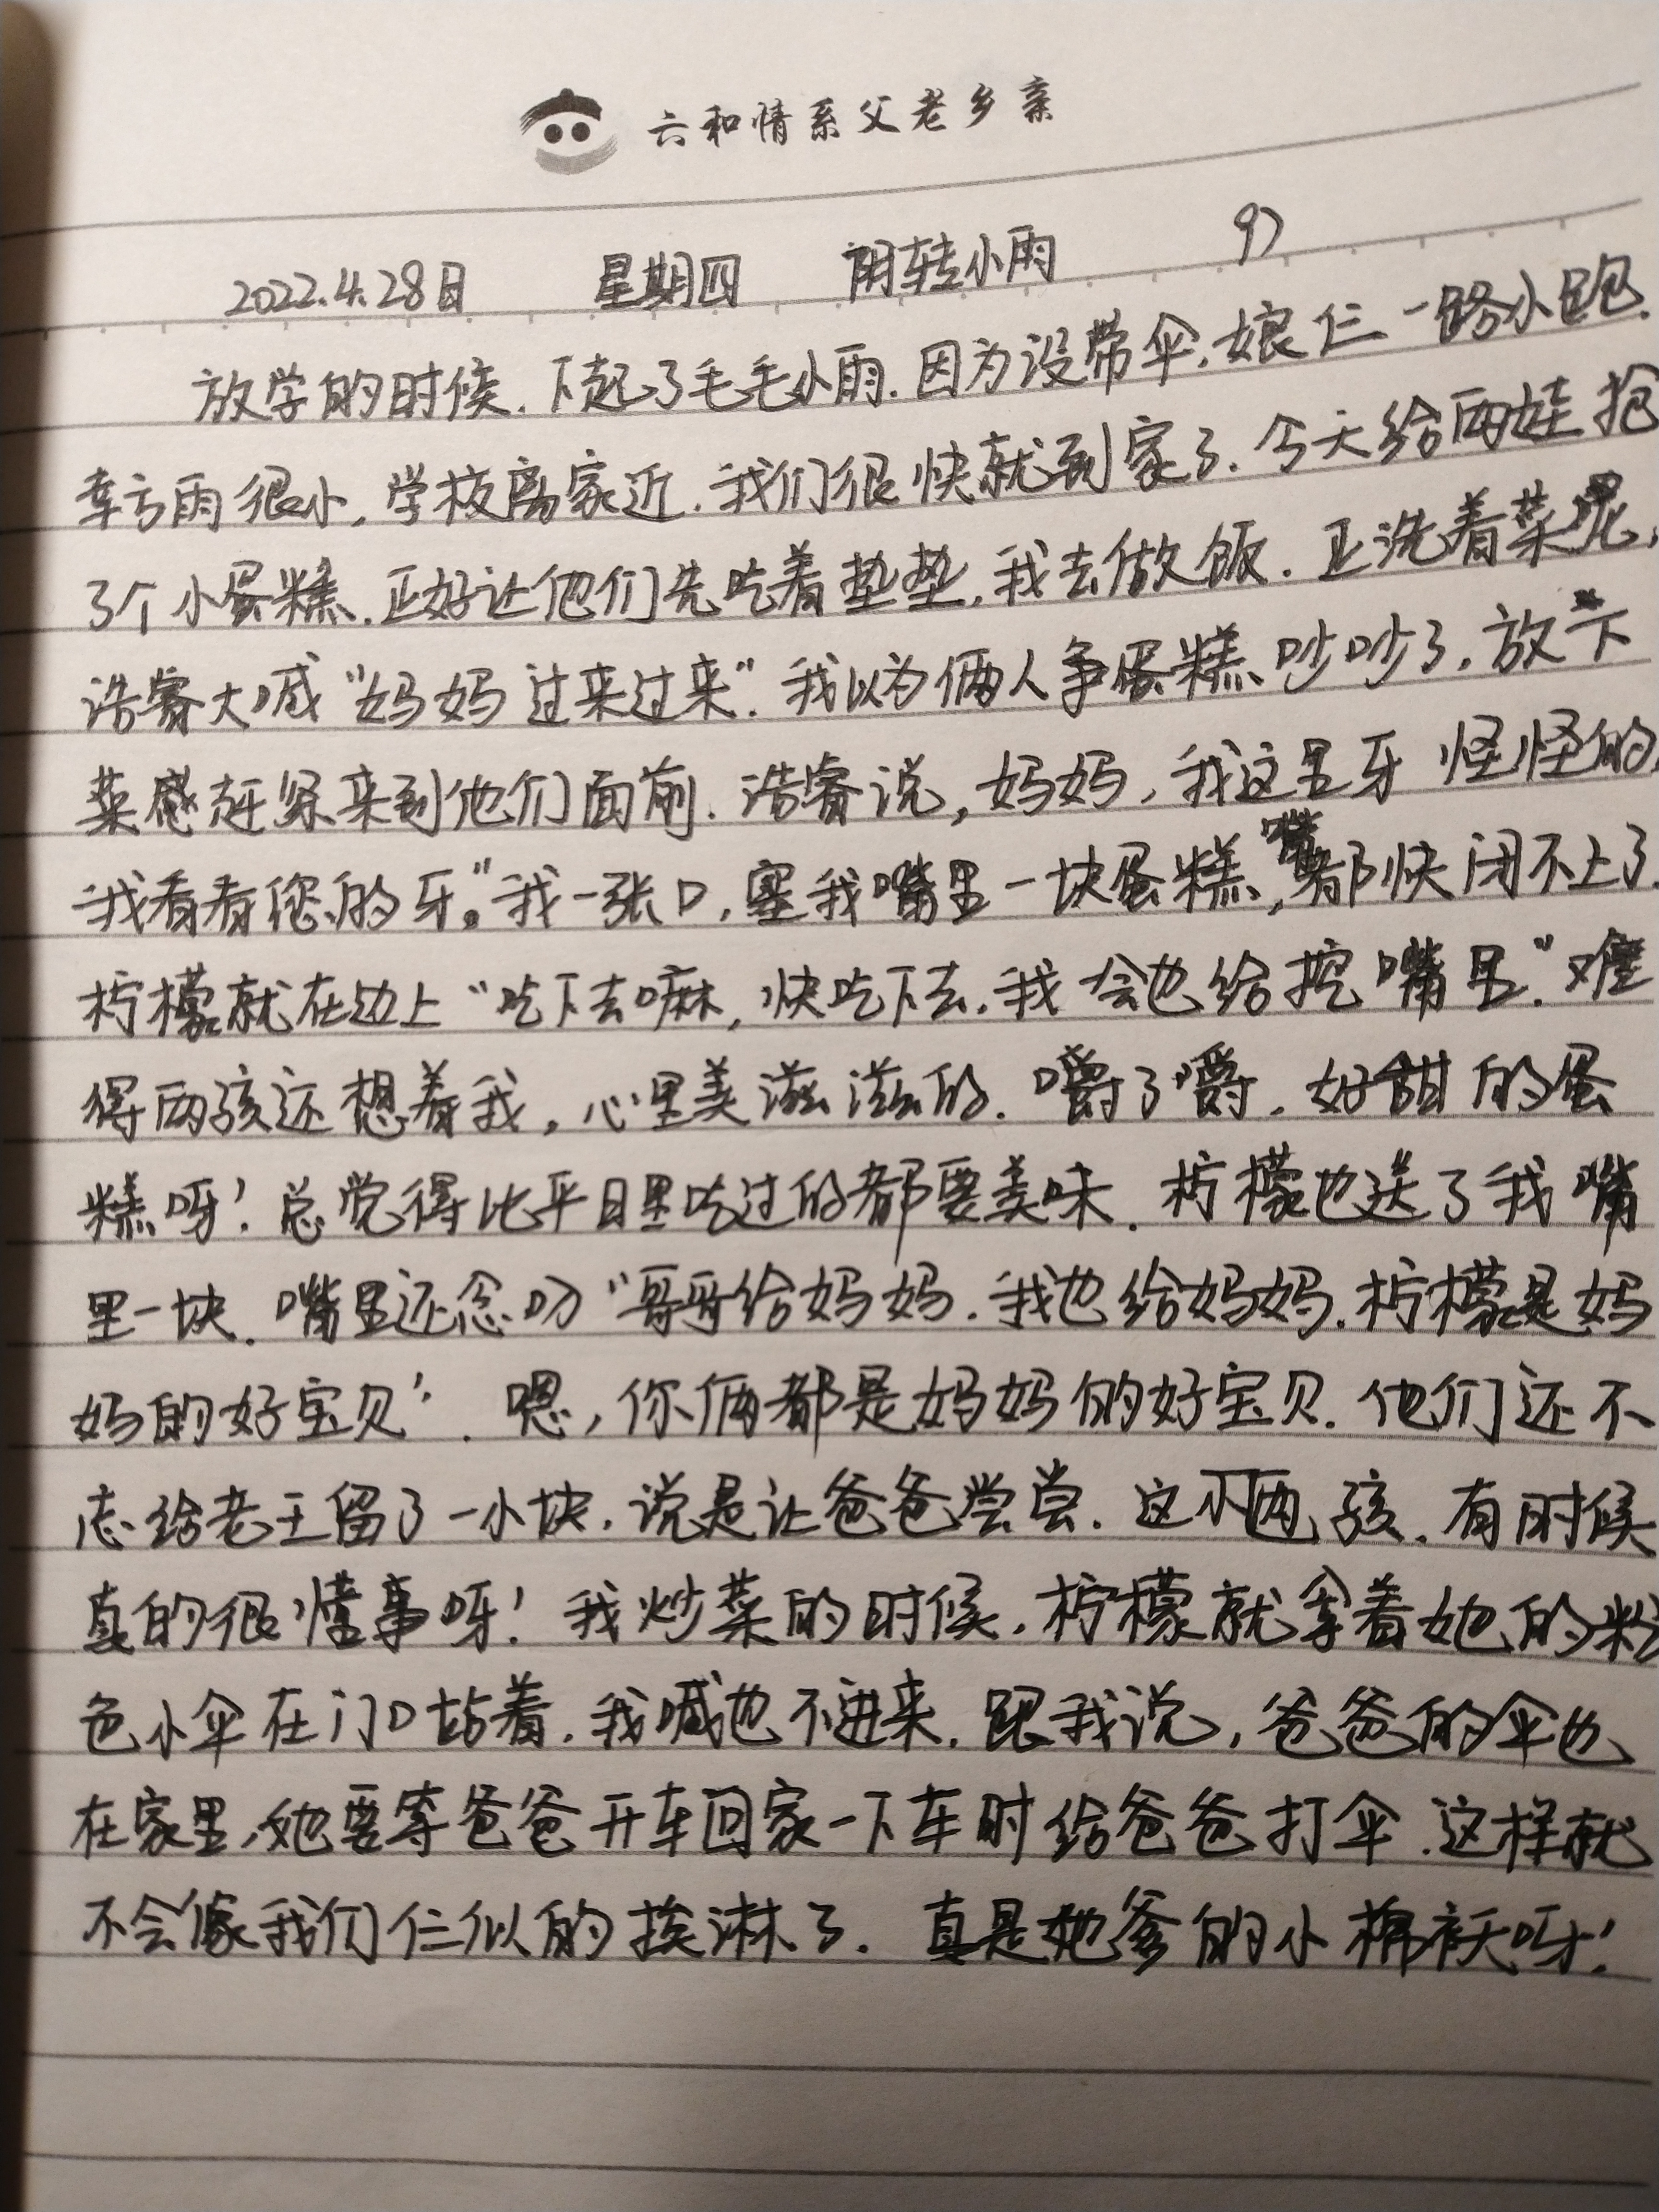 六和情系父老乡亲
2022.4.28日 星期四 阴转小雨 97
放学的时候.下起了毛毛小雨.因为没带伞,娘仨一路小跑.
幸亏雨很小,学校离家近.我们很快就到家了.今天给两娃抢
了个小蛋糕.正好让他们先吃着垫垫,我去做饭.正洗着菜呢,
浩睿大喊“妈妈过来过来”.我以为俩人争蛋糕吵吵了.放下
菜感赶紧来到他们面前.浩睿说,妈妈,我这里牙怪怪的,
我看看您的牙。”我一张口,塞我嘴里一块蛋糕,嘴都快闭不上了.
柠檬就在边上“吃下去嘛,快吃下去.我会也给挖嘴里.”难
得两孩还想着我,心里美滋滋的.嚼了嚼,好甜的蛋
糕呀!总觉得比平日里吃过的都要美味.柠檬也送了我嘴
里一块.嘴里还念叨“哥哥给妈妈.我也给妈妈.柠檬是妈
妈的好宝贝”.嗯,你俩都是妈妈的好宝贝.他们还不
忘给老王留了一小块.说是让爸爸尝尝.这小两孩.有时候
真的很懂事呀!我炒菜的时候,柠檬就拿着她的粉
色小伞在门口站着.我喊也不进来.跟我说,爸爸的伞也
在家里,她要等爸爸开车回家一下车时给爸爸打伞.这样就
不会像我们仨似的挨淋了.真是她爹的小棉袄呀!